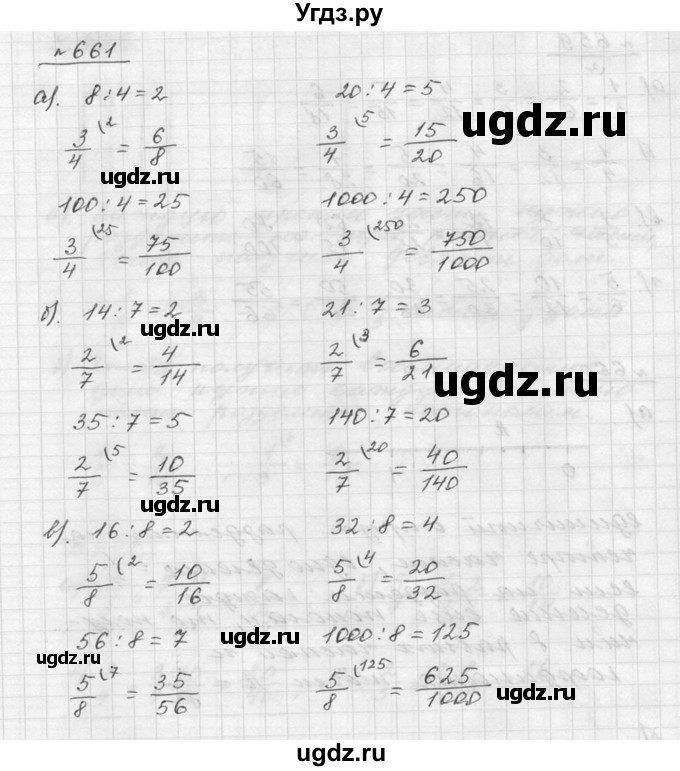 Угдз.ру
№661
а). 8:4=2 20:4=5
3/4 (2 = 6/8 3/4 (5 = 15/20
ugdz.ru ugdz.ru
100:4=25 1000:4=250
3/4 (25 = 75/100 3/4 (250 = 750/1000
ugdz.ru ugdz.ru
б). 14:7=2 21:7=3
ugdz.ru
2/7 (2 = 4/14 2/7 (3 = 6/21
ugdz.ru
35:7=5 140:7=20
ugdz.ru
2/7 (5 = 10/35 2/7 (20 = 40/140
ugdz.ru
в). 16:8=2 32:8=4
5/8 (2 = 10/16 5/8 (4 = 20/32
ugdz.ru ugdz.ru
56:8=7 1000:8=125
ugdz.ru ugdz.ru
5/8 (7 = 35/56 5/8 (125 = 625/1000
ugdz.ru ugdz.ru
ugdz.ru